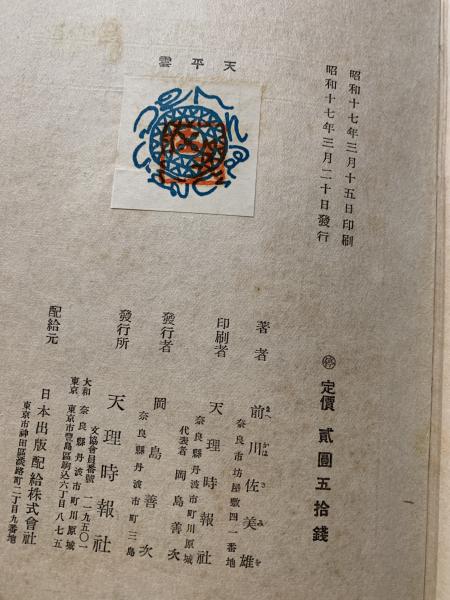 天平雲
昭和十七年三月十五日印刷
昭和十七年三月二十日發行
定價 貳圓五拾錢
著者 前川佐美雄
まへがはさみを
奈良市坊屋敷四一番地
印刷者 天理時報社
奈良縣丹波市町川原城
代表者 岡島善次
發行者 岡島善次
奈良縣丹波市町三島
發行所 天理時報社
文協會員番號 一二九五〇一
大和 奈良縣丹波市町川原城
東京 東京市豐島區駒込六丁目八七五
配給元 日本出版配給株式會社
東京市神田區淡路町二丁目九番地